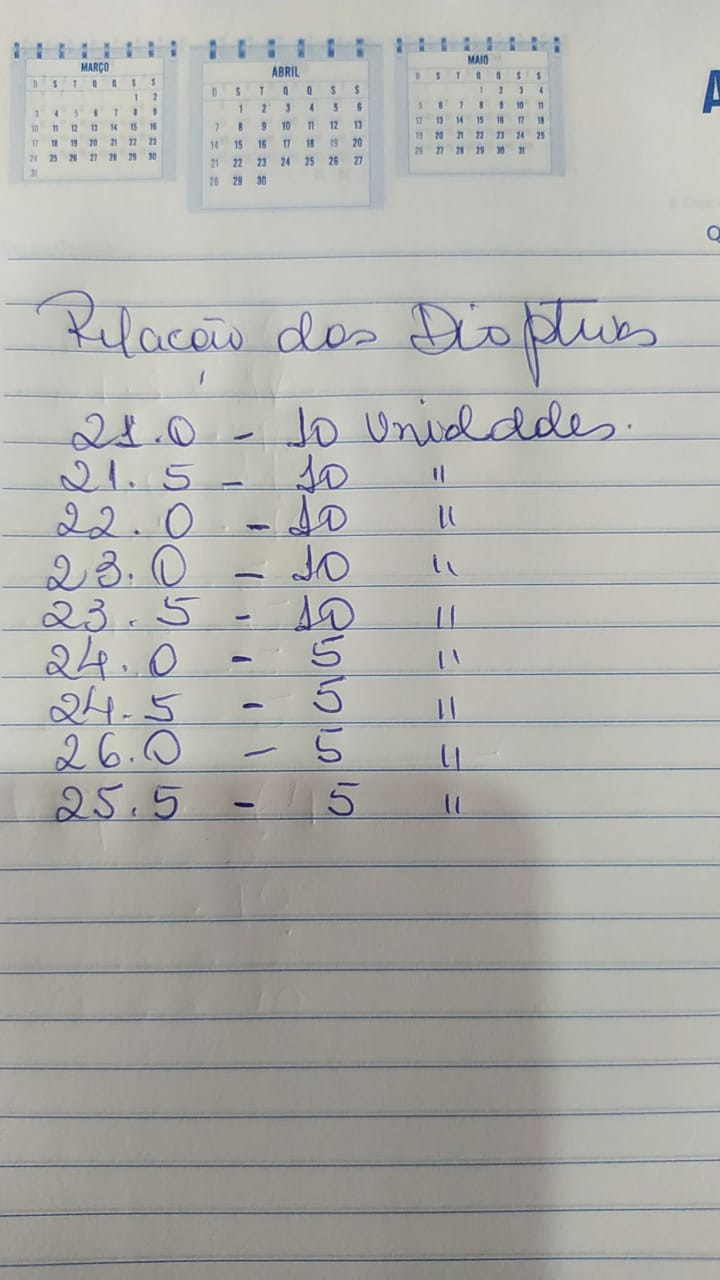 MARÇO
D S T Q Q S S
1 2
3 4 5 6 7 8 9
10 11 12 13 14 15 16
17 18 19 20 21 22 23
24 25 26 27 28 29 30
31
ABRIL
D S T Q Q S S
1 2 3 4 5 6
7 8 9 10 11 12 13
14 15 16 17 18 19 20
21 22 23 24 25 26 27
28 29 30
MAIO
D S T Q Q S S
1 2 3 4
5 6 7 8 9 10 11
12 13 14 15 16 17 18
19 20 21 22 23 24 25
26 27 28 29 30 31
A
Q
Relação das Dioptrias
21.0 - 10 Unidades.
21.5 - 10 "
22.0 - 10 "
23.0 - 10 "
23.5 - 10 "
24.0 - 5 "
24.5 - 5 "
26.0 - 5 "
25.5 - 5 "